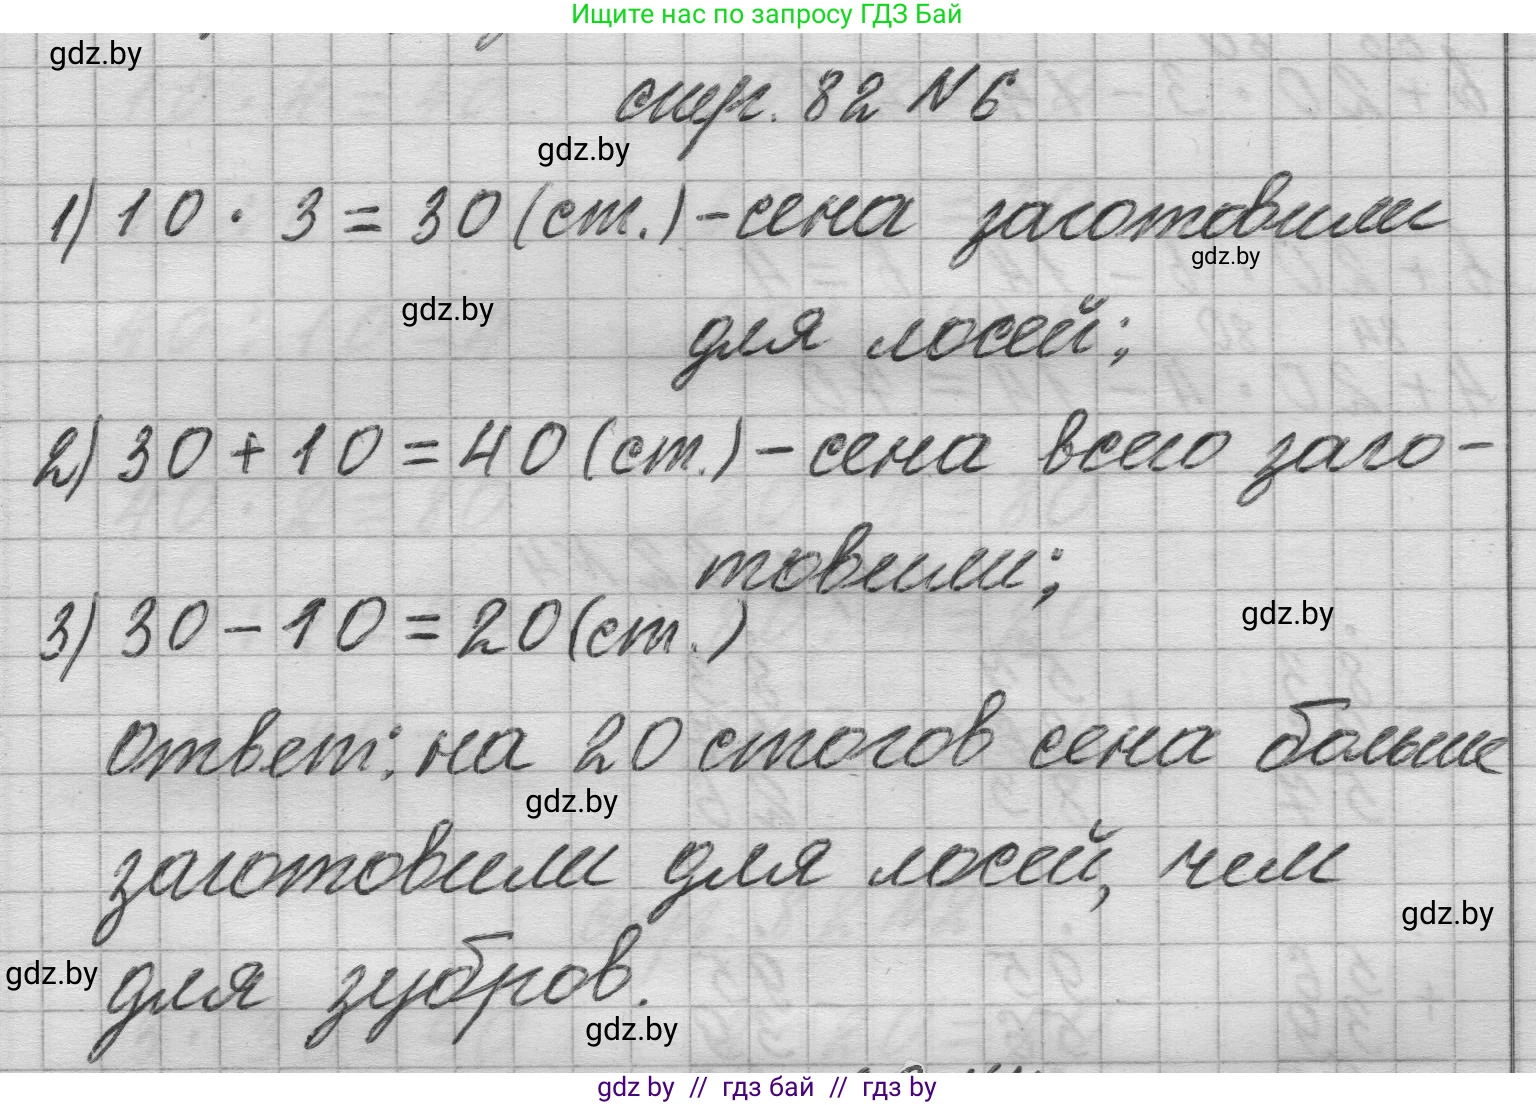 Ищите нас по запросу ГДЗ Бай
gdz.by
стр. 82 № 6
gdz.by
1) 10 · 3 = 30 (ст.) - сена заготовили
gdz.by
gdz.by
для лосей;
2) 30 + 10 = 40 (ст.) - сена всего заго-
товили;
gdz.by
3) 30 - 10 = 20 (ст.)
Ответ: на 20 стогов сена больше
gdz.by
заготовили для лосей, чем
gdz.by
gdz.by
для зубров.
gdz.by
gdz by // гдз бай // гдз by